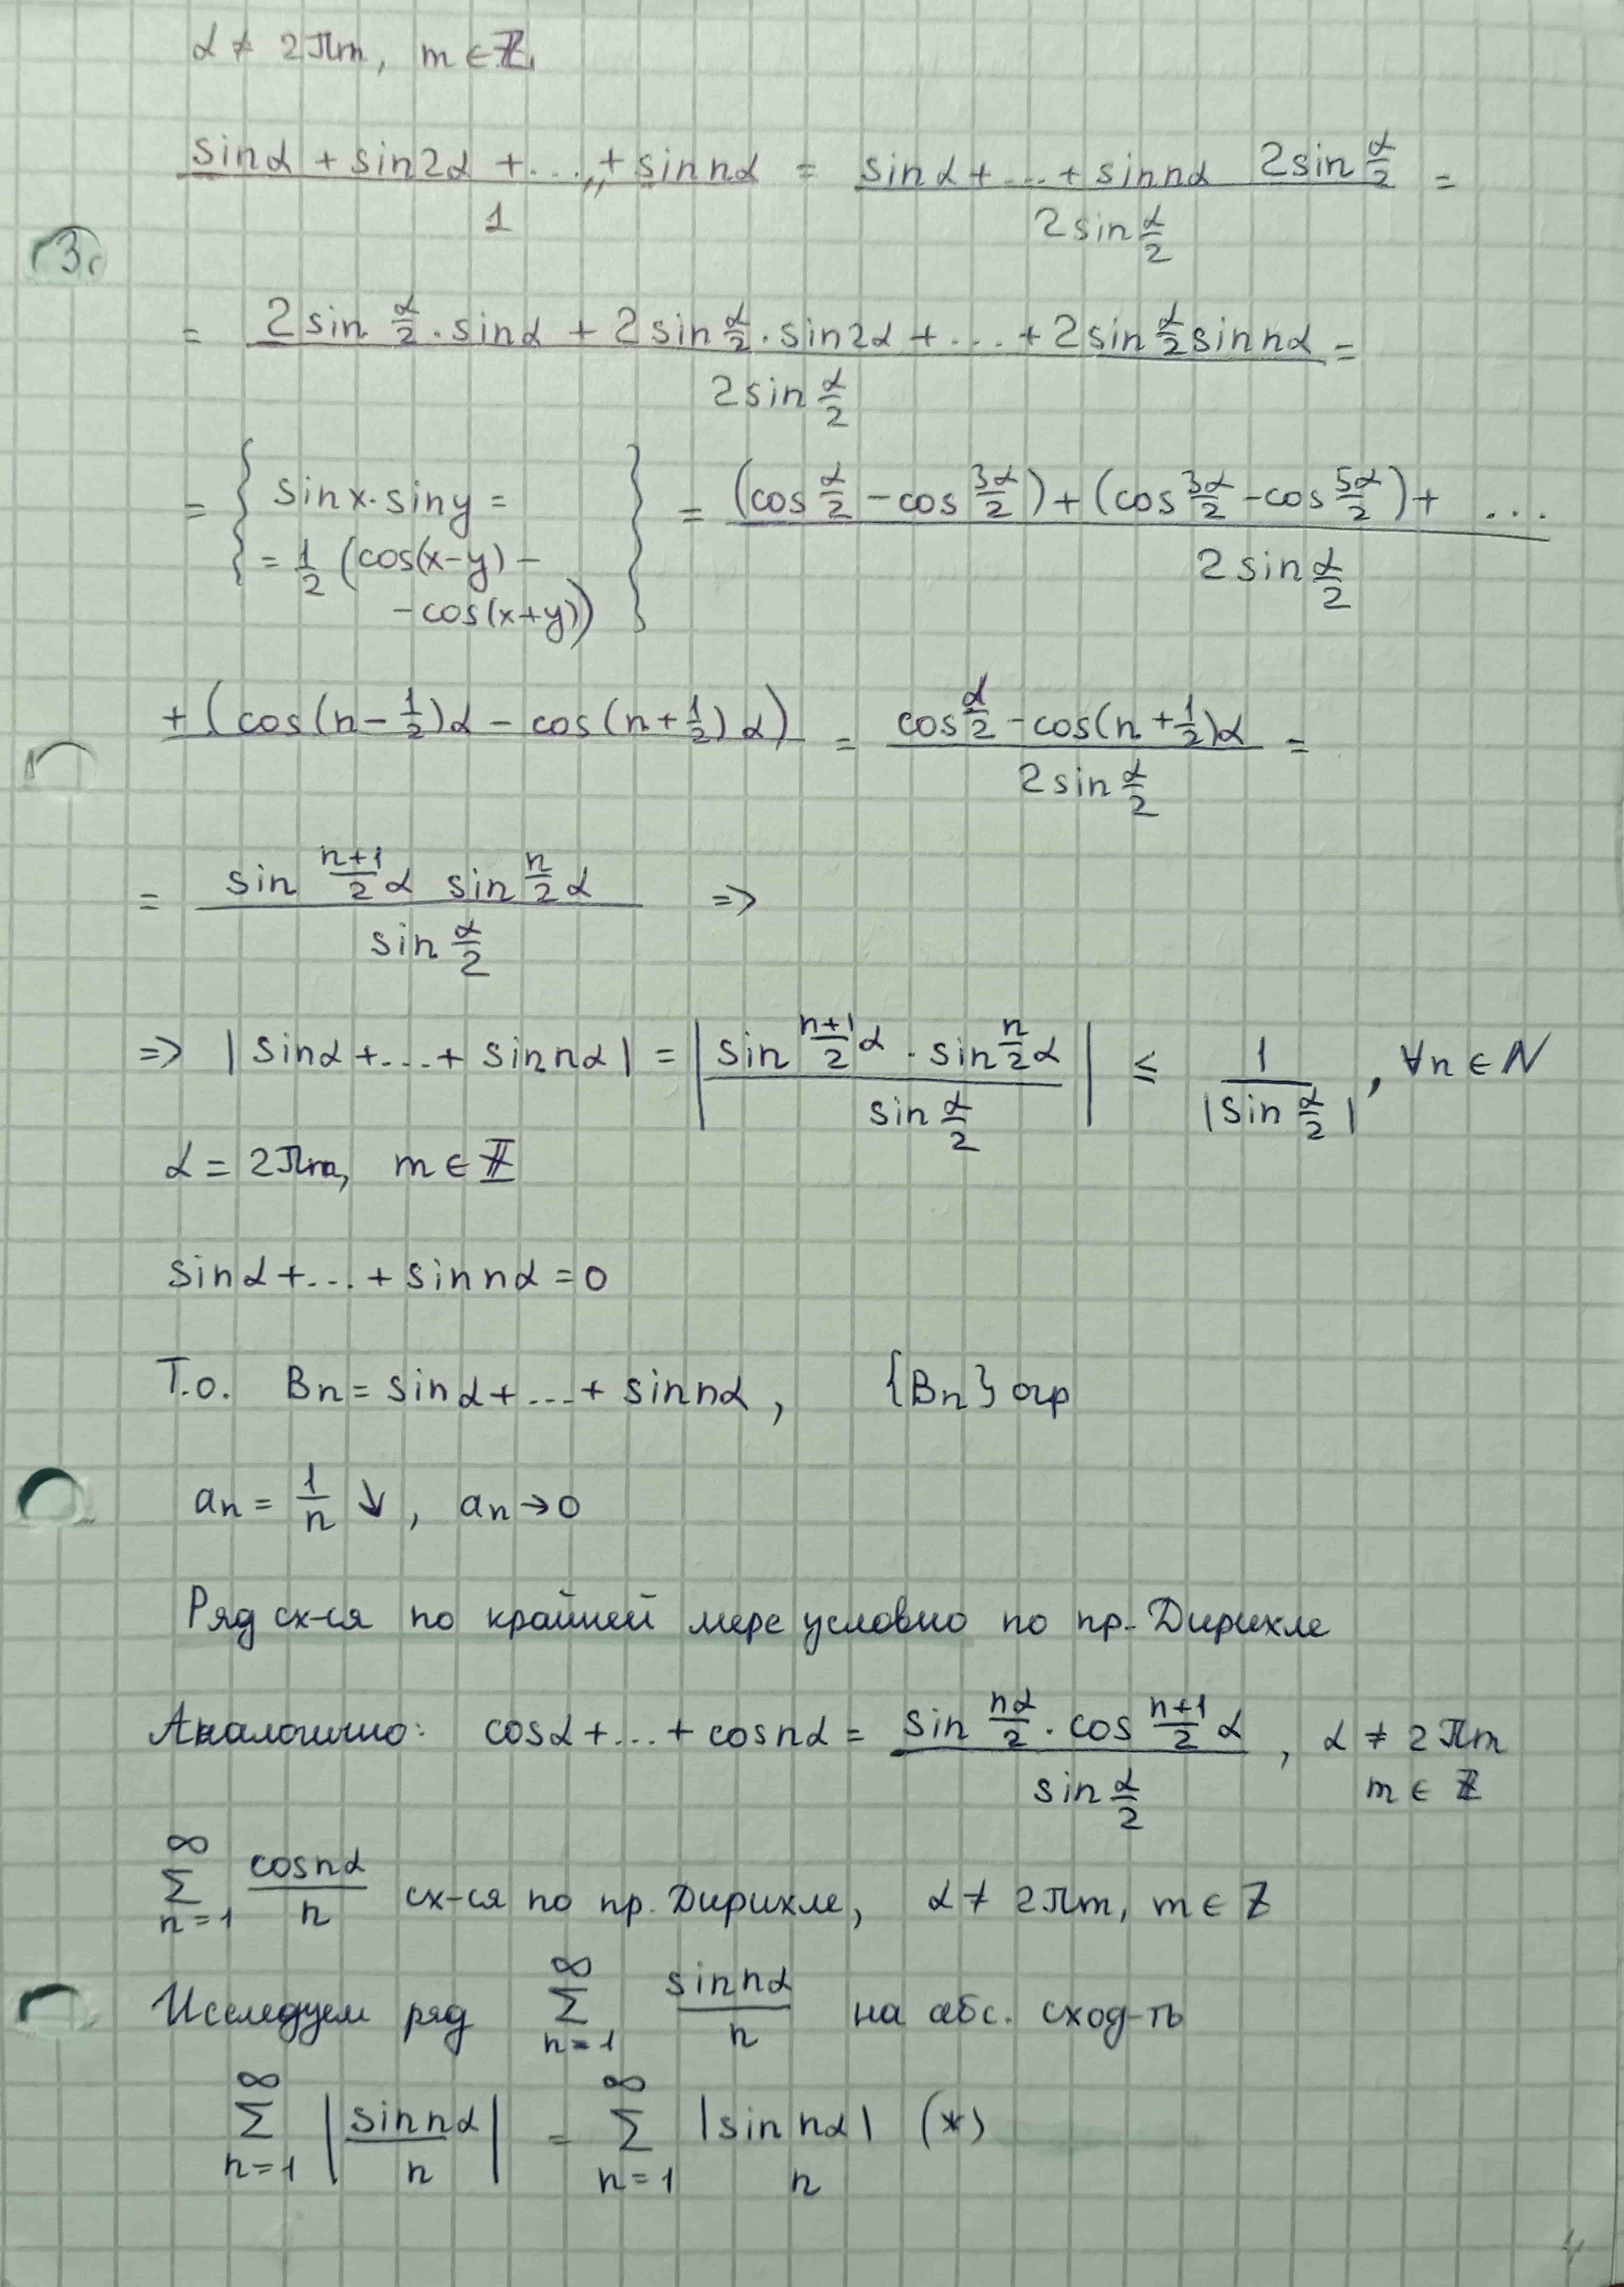 α ≠ 2πm, m ∈ ℤ
(sinα + sin2α + ... + sin nα)/1 = (sinα + ... + sin nα 2sin α/2)/(2sin α/2) =
3.
= (2sin α/2 · sinα + 2sin α/2 · sin2α + ... + 2sin α/2 sin nα)/(2sin α/2) =
= { sinx · siny = = 1/2 (cos(x-y) - - cos(x+y)) } = ((cos α/2 - cos 3α/2) + (cos 3α/2 - cos 5α/2) + ...)/(2sin α/2)
+ (cos(n - 1/2)α - cos(n + 1/2)α) = (cos α/2 - cos(n + 1/2)α)/(2sin α/2) =
= (sin (n+1)/2 α sin n/2 α)/(sin α/2) =>
=> |sinα + ... + sin nα| = |(sin (n+1)/2 α · sin n/2 α)/(sin α/2)| ≤ 1/|sin α/2|, ∀n ∈ N
α = 2πm, m ∈ ℤ
sinα + ... + sin nα = 0
Т.о. Bn = sinα + ... + sin nα, {Bn} огр
an = 1/n ↓, an → 0
Ряд сх-ся по крайней мере условно по пр. Дирихле
Аналогично: cosα + ... + cos nα = (sin nα/2 · cos (n+1)/2 α)/(sin α/2), α ≠ 2πm
m ∈ ℤ
∑_{n=1}^{∞} cos nα/n сх-ся по пр. Дирихле, α ≠ 2πm, m ∈ ℤ
Исследуем ряд ∑_{n=1}^{∞} sin nα/n на абс. сход-ть
∑_{n=1}^{∞} |sin nα/n| = ∑_{n=1}^{∞} |sin nα|/n (*)
4